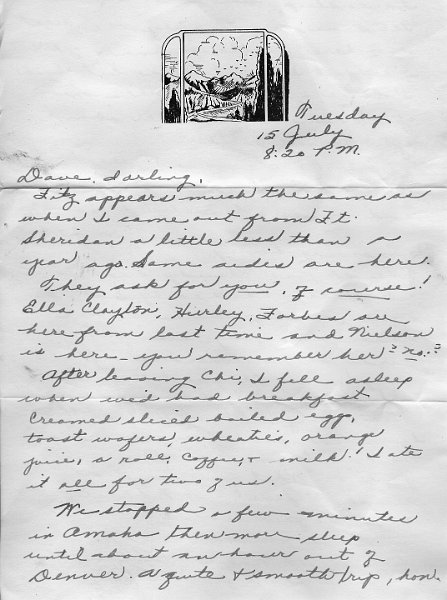 Tuesday
15 July
8:20 P.M.
Dave, darling,
Fitz appears much the same as
when I came out from Ft.
Sheridan a little less than a
year ago. Same aides are here.
They ask for you, of course!
Ella Clayton, Hurley, Forbes are
here from last time and Nielson
is here - you remember her? no.?
After leaving Chi, I fell asleep
when we'd had breakfast
creamed sliced boiled egg,
toast wafers, wheaties, orange
juice, a roll, coffee, + milk! I ate
it all for two of us.
We stopped a few minutes
in Omaha then more sleep
until about an hour out of
Denver. A quite + smooth trip, hon.